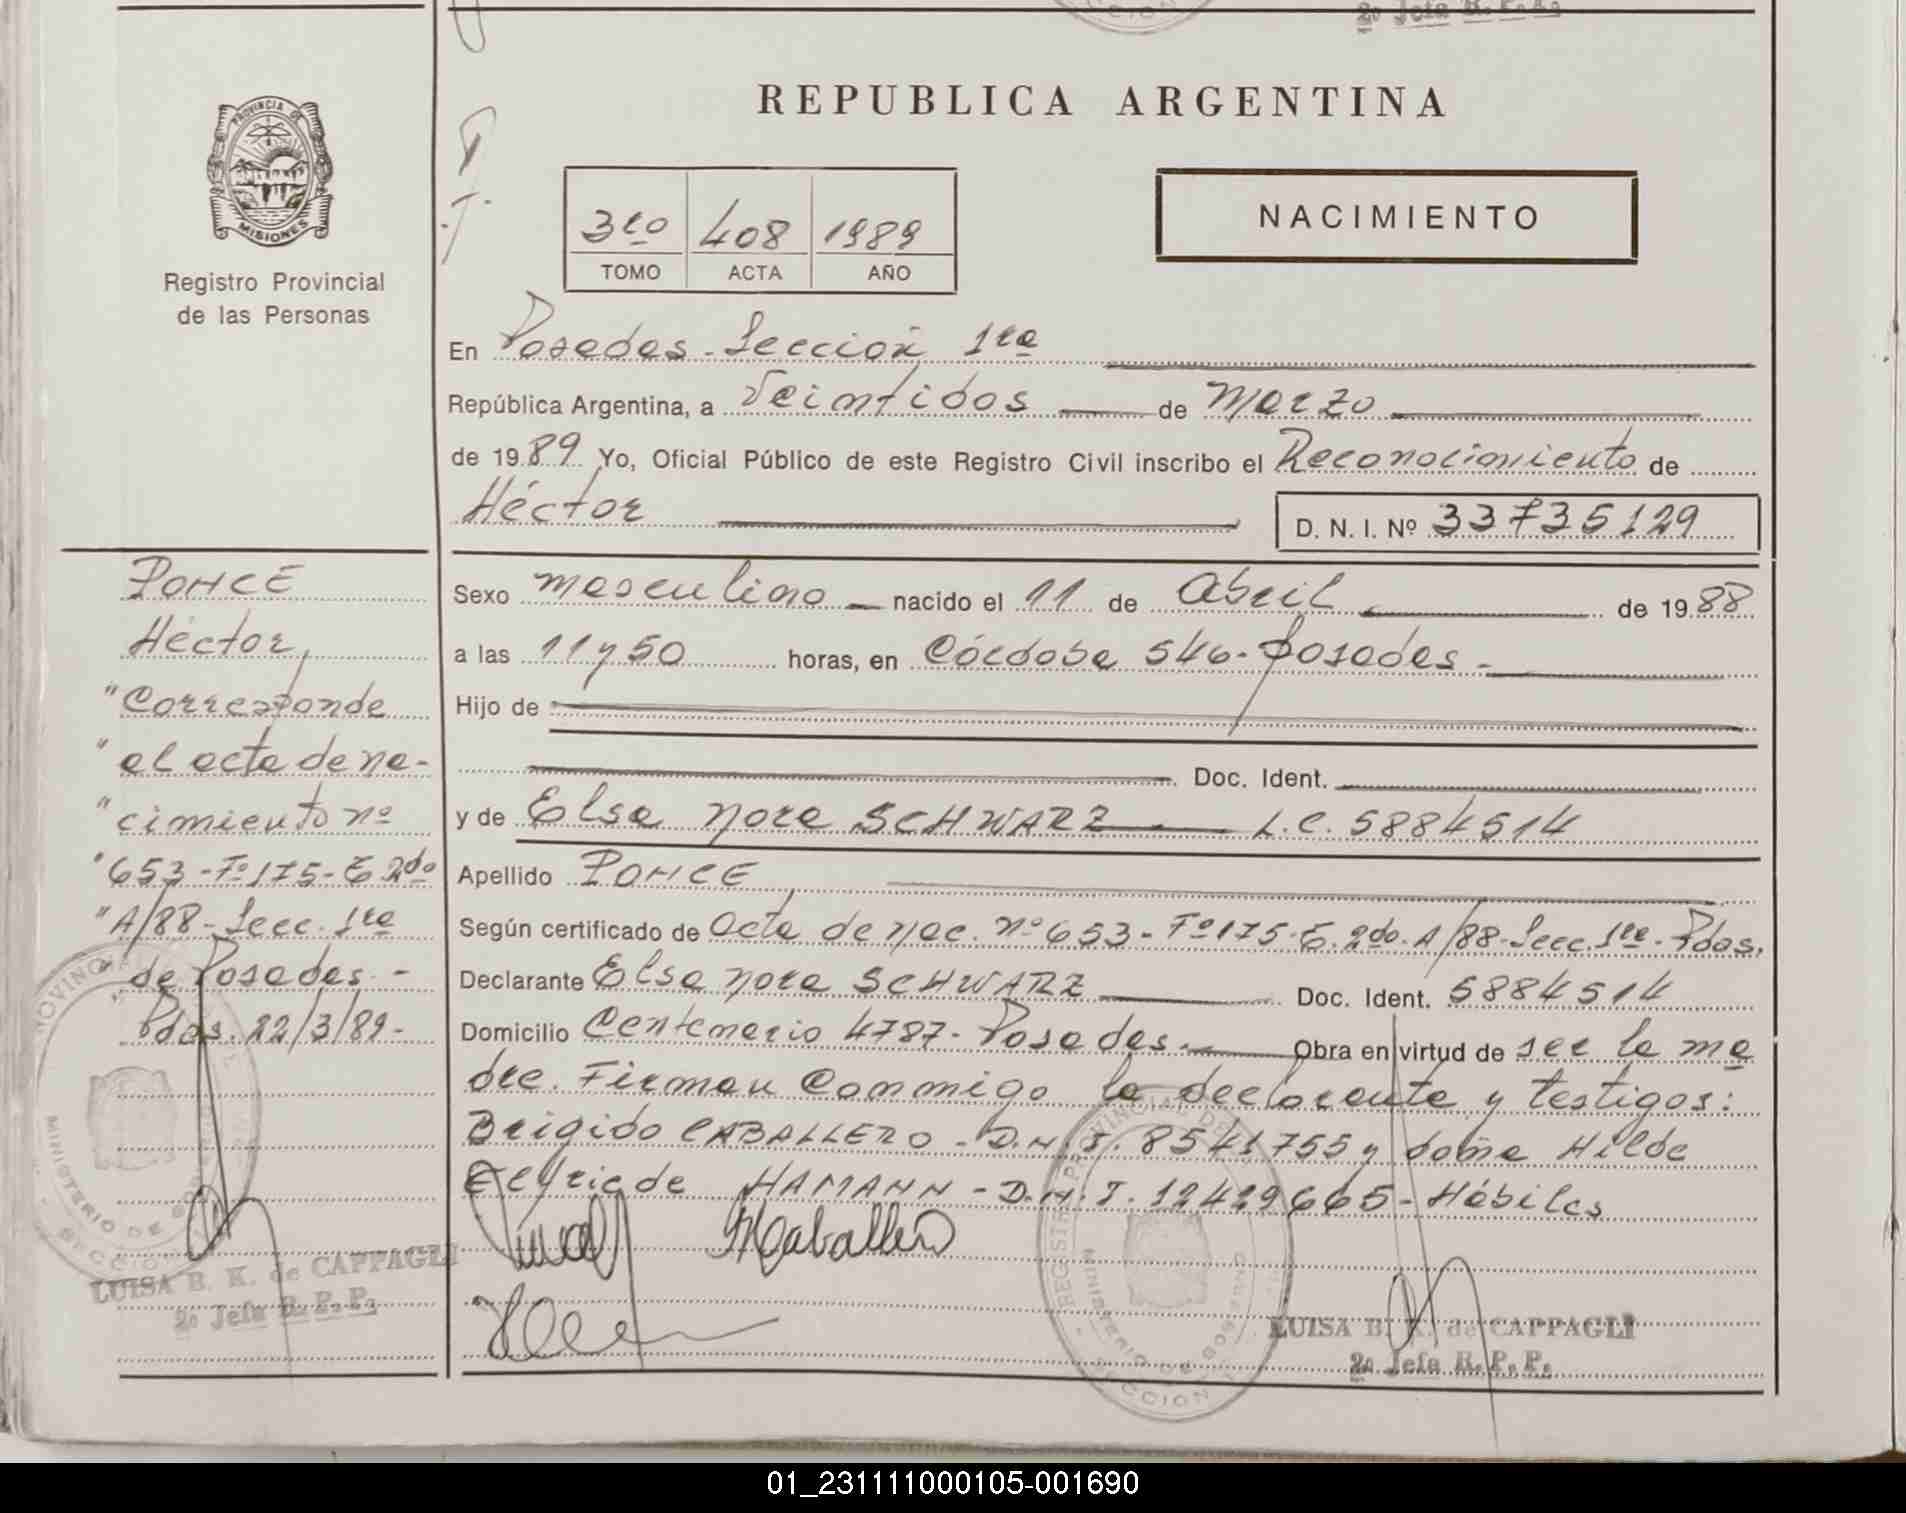 2º Jefa R. P. P.
PROVINCIA DE
MISIONES
Registro Provincial
de las Personas
REPUBLICA ARGENTINA
3ro 408 1989
TOMO ACTA AÑO
NACIMIENTO
En Posadas - Sección 1ra
República Argentina, a Veintidos de Marzo
de 1989 Yo, Oficial Público de este Registro Civil inscribo el Reconocimiento de
Héctor
D. N. I. Nº 33735129
PONCE
Héctor
"Corresponde
"al acta de na-
"cimiento nº
"653-Fº175-T 2do
"A/88-Secc. 1ra
"de Posadas.-
Pdas. 22/3/89-
LUISA B. K. de CAPPAGLI
2º Jefa R. P. P.
Sexo masculino nacido el 11 de Abril de 1988
a las 11 y 50 horas, en Córdoba 546-Posadas-
Hijo de
Doc. Ident.
y de Elsa Nora SCHWARZ L.C. 5884514
Apellido PONCE
Según certificado de Acta de Nac. nº 653-Fº175-T. 2do. A/88-Secc. 1ra-Pdas.
Declarante Elsa Nora SCHWARZ Doc. Ident. 5884514
Domicilio Centenario 4787-Posadas. Obra en virtud de ser la ma
dre. Firman conmigo la declarante y testigos:
Brigido CABALLERO-D.N.I. 8541755 y doña Hilda
Elfride HAMANN-D.N.I. 12429665-Hábiles
HCaballero
REGISTRO PROVINCIAL DE
MINISTERIO DE GOBIERNO
SECCION 1
LUISA B. K. de CAPPAGLI
2º Jefa R. P. P.
01_231111000105-001690